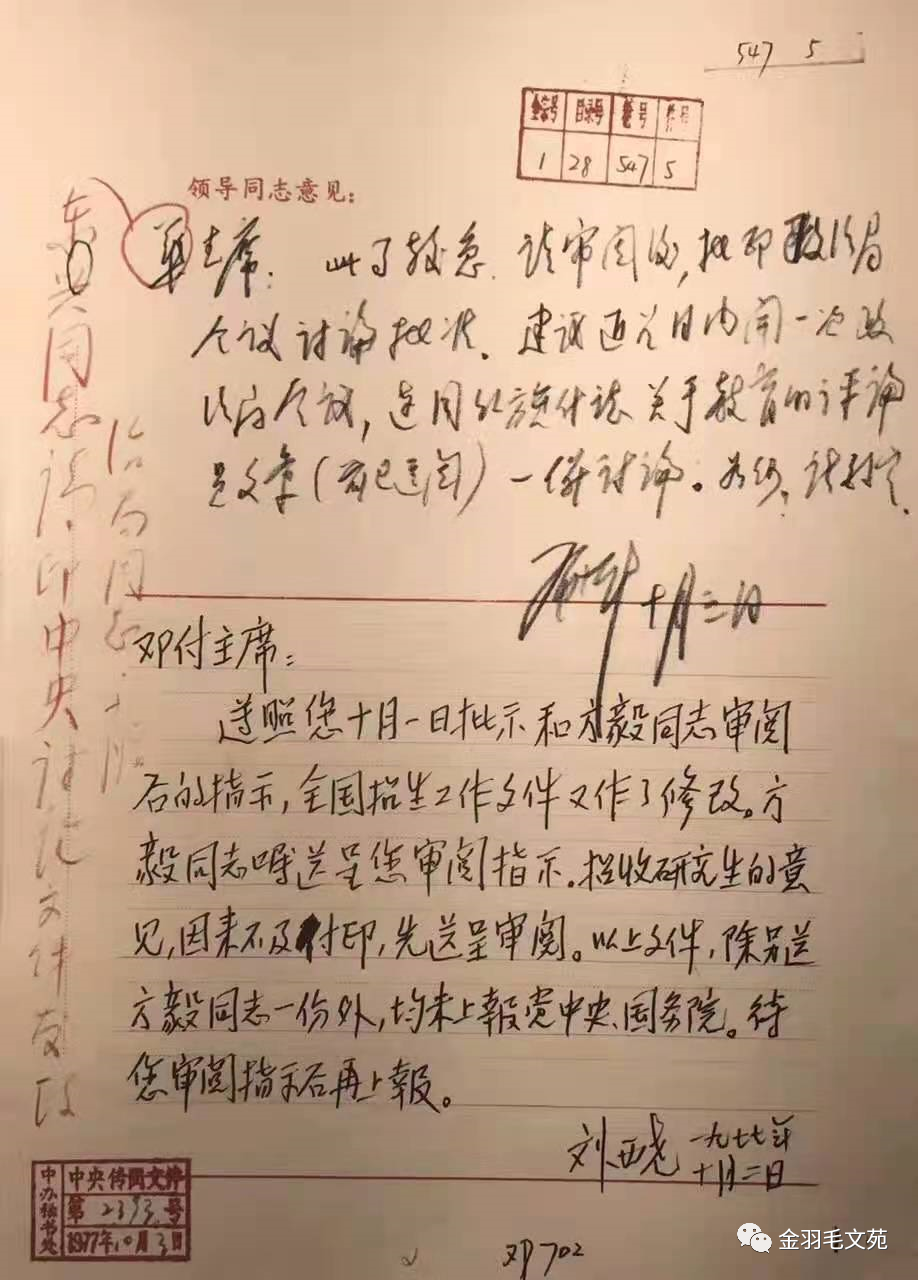 547 5
全宗号 目录号 卷号 件号
1 28 547 5
领导同志意见：
华主席：此事较急，请审阅后，批印政治局
会议讨论批准。建议近几日内开一次政
治局会议，连同红旗杂志关于教育的评论
员文章（前已送阅）一併讨论。如何，请批示。
邓小平 十月三日
东兴同志：请印中央讨论文件发政
治局同志
邓付主席：
遵照您十月一日批示和方毅同志审阅
后的指示，全国招生工作文件又作了修改。方
毅同志嘱送呈您审阅指示。招收研究生的意
见，因来不及付印，先送呈审阅。以上文件，除另送
方毅同志一份外，均未上報党中央、国务院。待
您审阅指示后再上報。
刘西尧 一九七七年
十月二日
中办秘书处
中央传阅文件
第2393号
1977年10月3日
邓702
金羽毛文苑